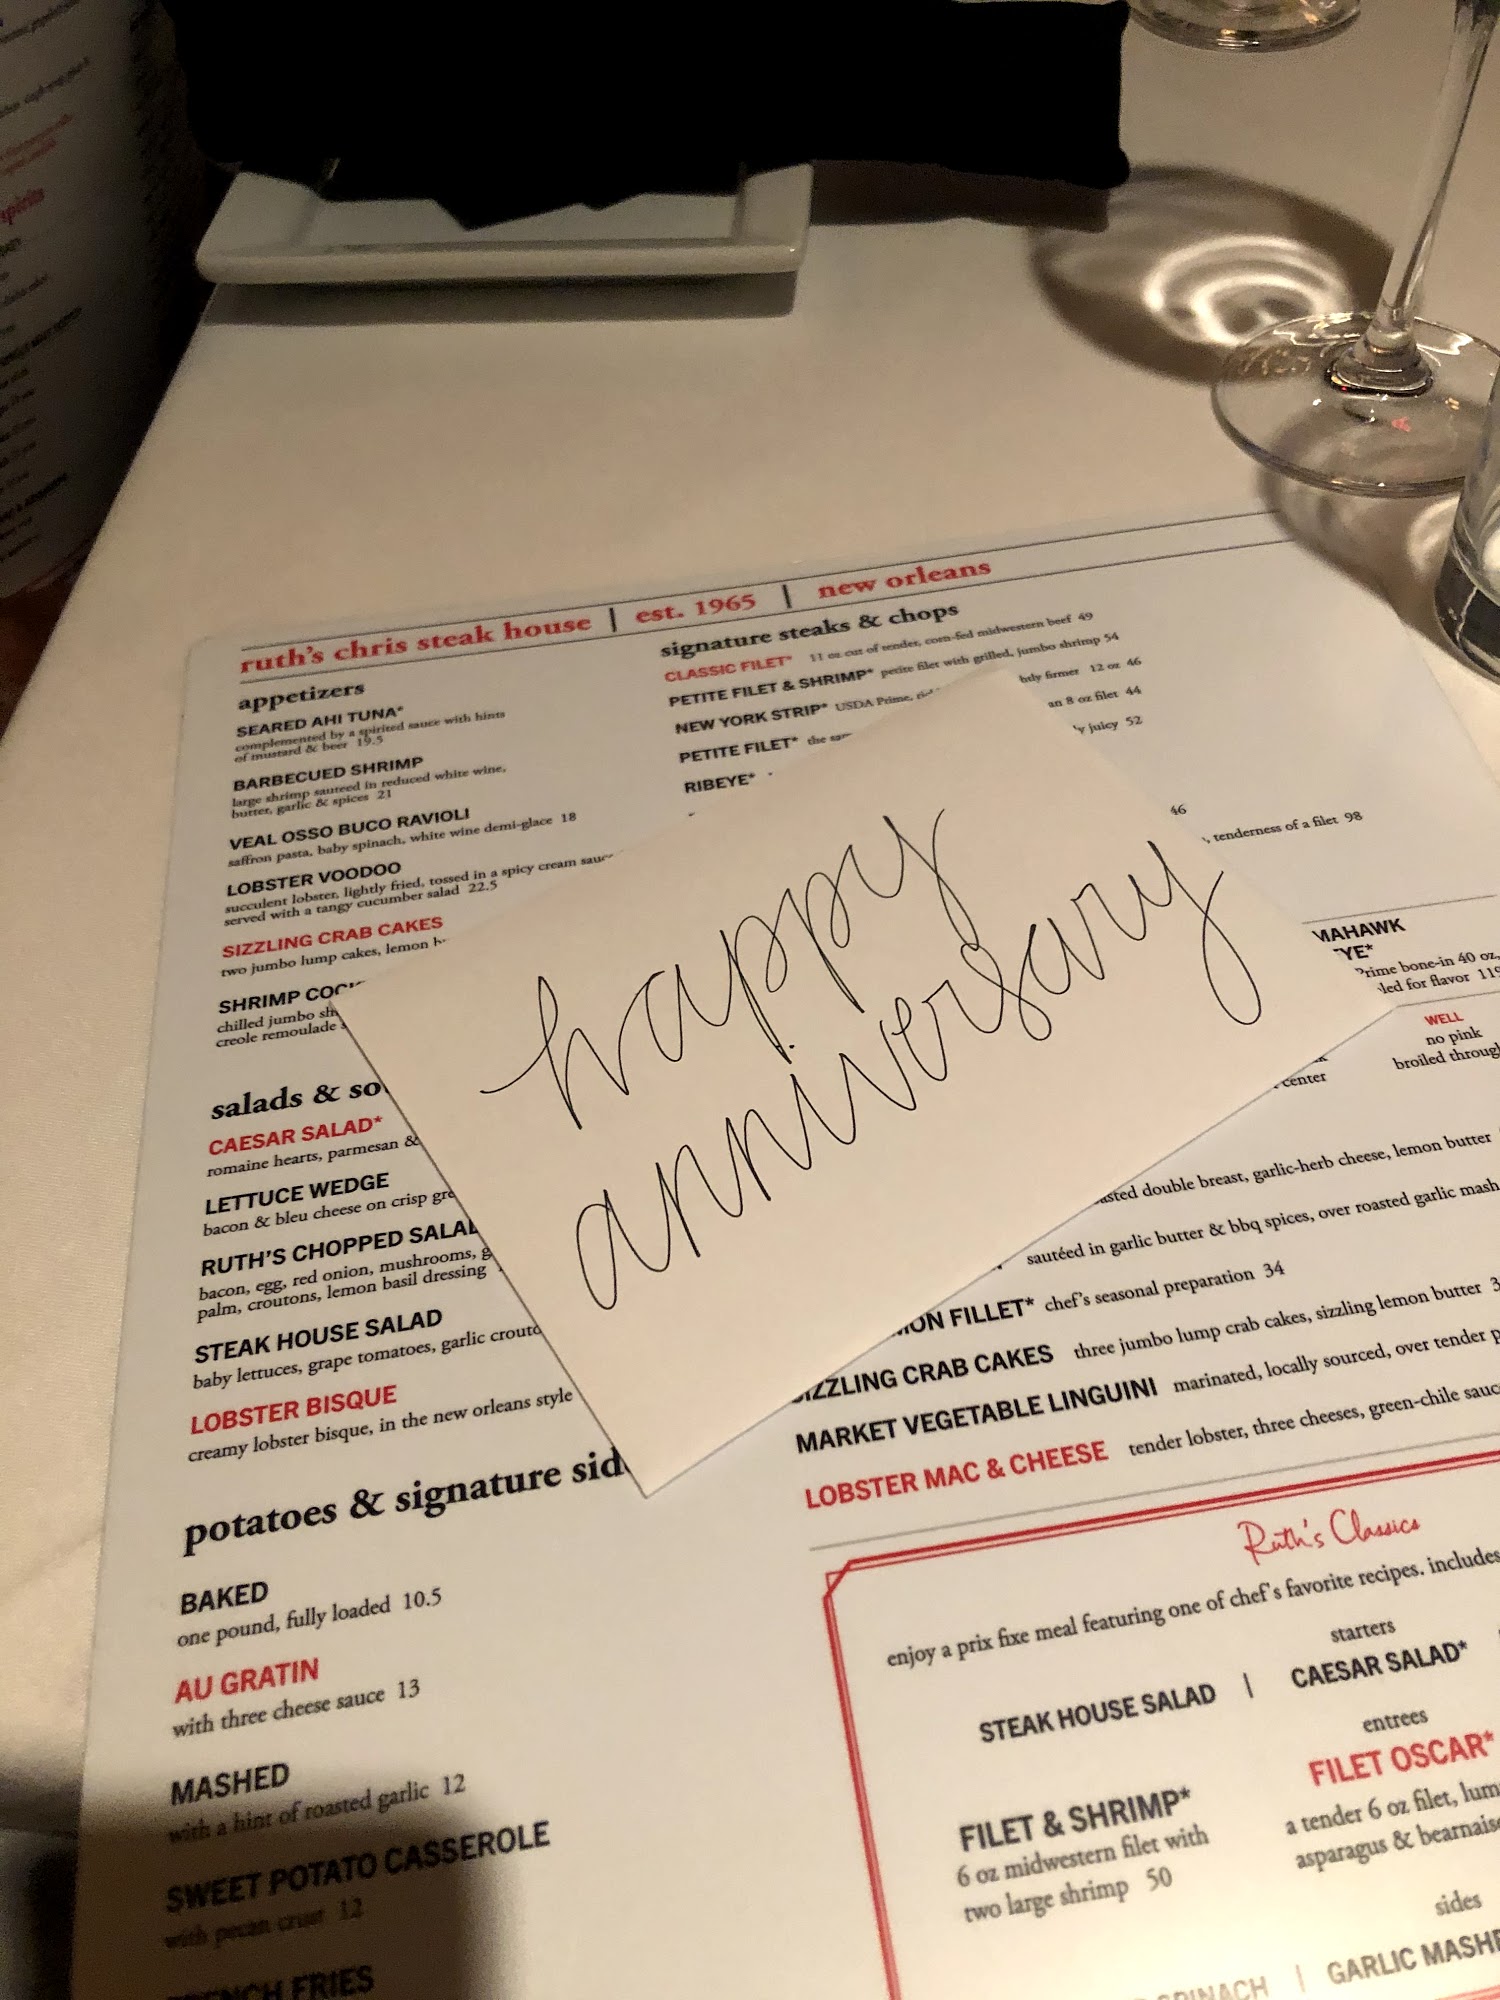 ruth's chris steak house | est. 1965 | new orleans
appetizers
SEARED AHI TUNA*
complemented by a spirited sauce with hints
of mustard & beer 19.5
BARBECUED SHRIMP
large shrimp sauteed in reduced white wine,
butter, garlic & spices 21
VEAL OSSO BUCO RAVIOLI
saffron pasta, baby spinach, white wine demi-glace 18
LOBSTER VOODOO
succulent lobster, lightly fried, tossed in a spicy cream
served with a tangy cucumber salad 22.5
SIZZLING CRAB CAKES
two jumbo lump cakes, lemon
SHRIMP
chilled jumbo
creole remoulade
salads &
CAESAR SALAD*
romaine hearts, parmesan &
LETTUCE WEDGE
bacon & bleu cheese on crisp
RUTH'S CHOPPED
bacon, egg, red onion, mushrooms,
palm, croutons, lemon basil dressing
STEAK HOUSE SALAD
baby lettuces, grape tomatoes, garlic
LOBSTER BISQUE
creamy lobster bisque, in the new orleans style
potatoes & signature
BAKED
one pound, fully loaded 10.5
AU GRATIN
with three cheese sauce 13
MASHED
with a hint of roasted garlic 12
SWEET POTATO CASSEROLE
with pecan crust 12
FRENCH FRIES
signature steaks & chops
CLASSIC FILET* 11 oz cut of tender, corn-fed midwestern beef 49
PETITE FILET & SHRIMP* petite filet with grilled, jumbo shrimp 54
NEW YORK STRIP* USDA Prime, firmer 12 oz 46
PETITE FILET* the an 8 oz filet 44
RIBEYE* juicy 52
46
tenderness of a filet 98
happy
anniversary
bone-in 40 oz,
for flavor
WELL
no pink
center broiled
double breast, garlic-herb cheese, lemon butter
sautéed in garlic butter & bbq spices, over roasted garlic
FILLET* chef's seasonal preparation 34
SIZZLING CRAB CAKES three jumbo lump crab cakes, sizzling lemon butter
MARKET VEGETABLE LINGUINI marinated, locally sourced, over tender
LOBSTER MAC & CHEESE tender lobster, three cheeses, green-chile
Ruth's Classics
enjoy a prix fixe meal featuring one of chef's favorite recipes. includes
starters
STEAK HOUSE SALAD | CAESAR SALAD*
entrees
FILET & SHRIMP*
6 oz midwestern filet with
two large shrimp 50
FILET OSCAR*
a tender 6 oz filet,
asparagus &
sides
SPINACH | GARLIC